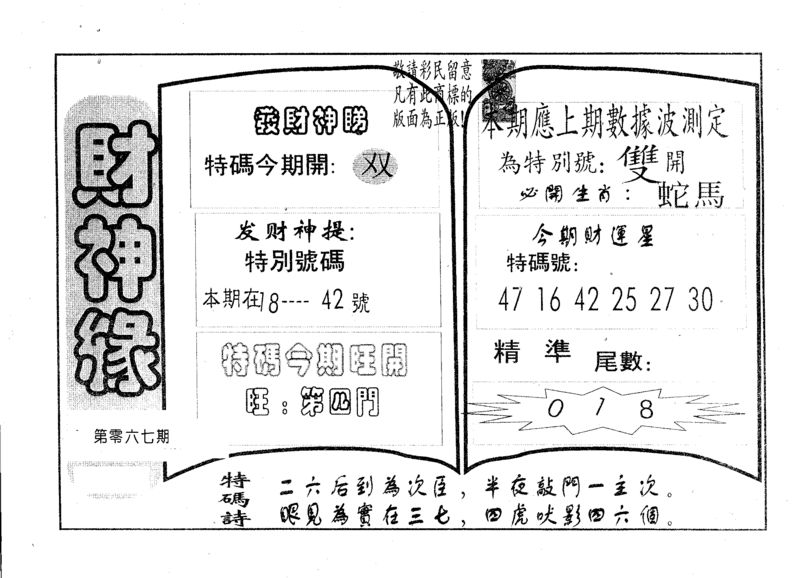 財神緣
第零六七期
敬請彩民留意
凡有此商標的
版面為正版!
發財神睇
特碼今期開: 双
发财神提:
特別號碼
本期在18---- 42號
特碼今期旺開
旺:第四門
本期應上期數據波測定
為特別號:雙開
必開生肖:蛇馬
今期财運星
特碼號:
47 16 42 25 27 30
精準 尾數:
0 1 8
特碼詩
二六后到為次臣,半夜敲門一主次。
眼見為實在三七,四虎吠影四六個。